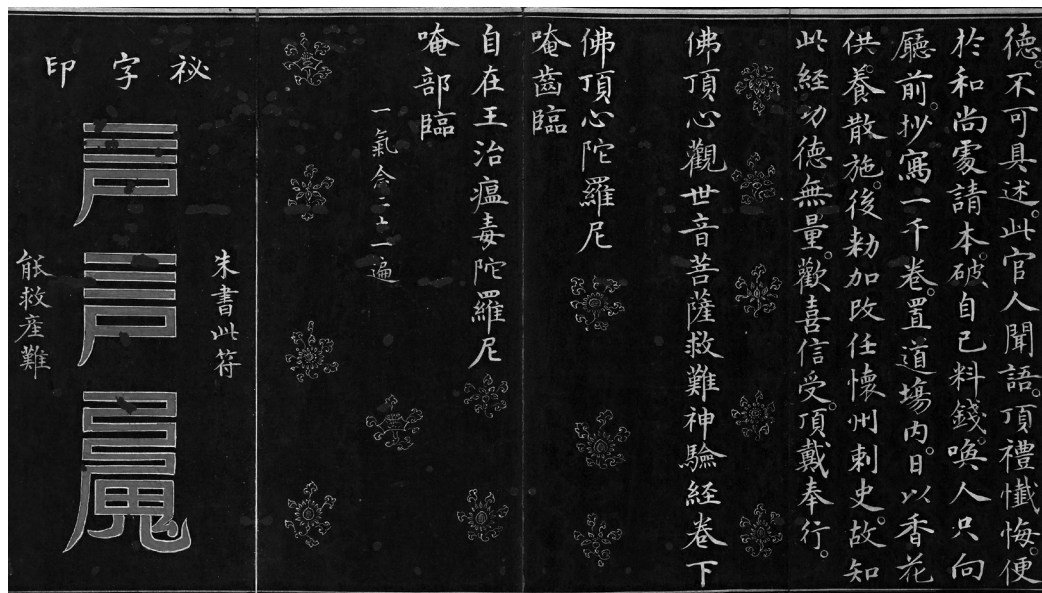 德。不可具述。此官人聞語。頂禮懺悔。便
於和尚處請本。破自己料錢。喚人只向
廳前。抄寫一千卷。置道場內。日以香花
供養散施。後勑加改任懷州刺史。故知
此經功德無量。歡喜信受。頂戴奉行。
佛頂心觀世音菩薩救難神驗経卷下
佛頂心陀羅尼
唵齒臨
自在王治瘟毒陀羅尼
唵部臨
一氣念二十一遍
祕字印
朱書此符
能救産難